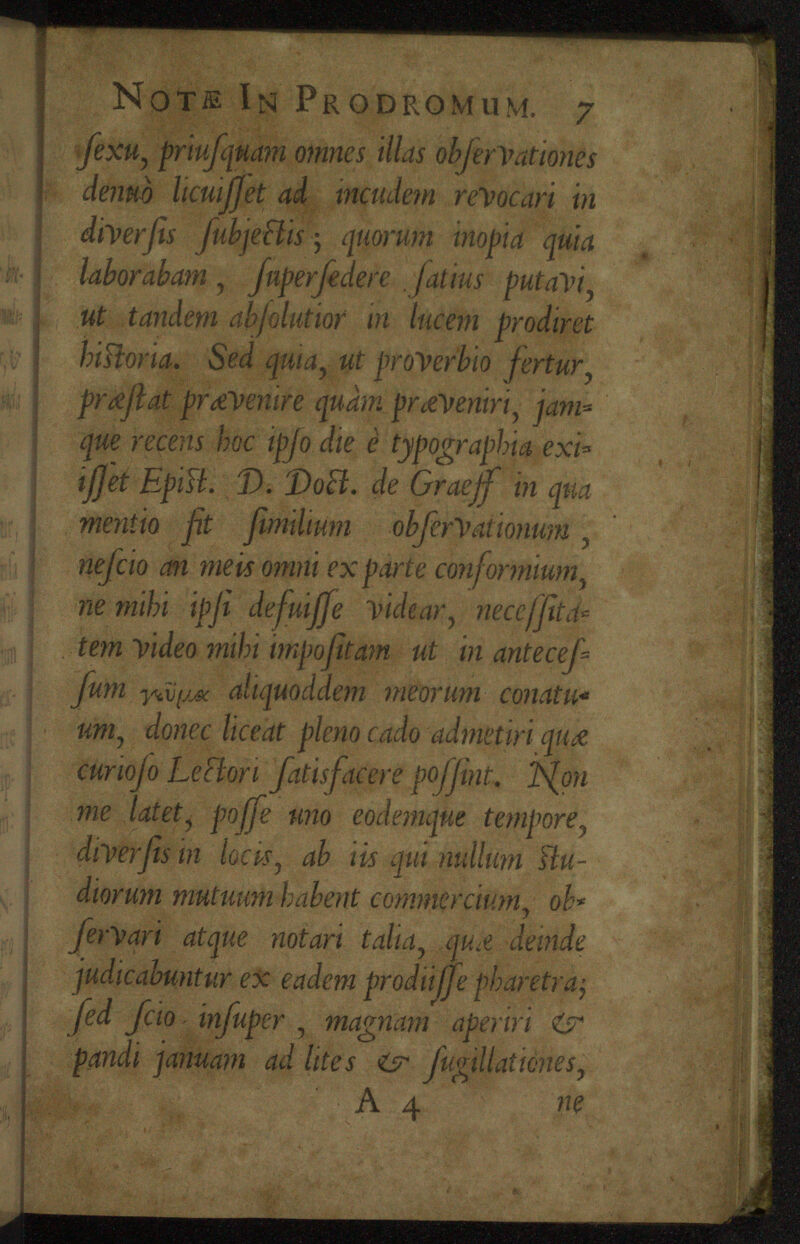 NOTÆ IN PRODROMUM. 7
ſexu, priuſquam omnes illas obſervationes
denuò licuiſſet ad incudem revocari in
diverſis ſubjectis; quorum inopia quia
laborabam, ſuperſedere ſatius putavi,
ut tandem abſolutior in lucem prodiret
hiſtoria. Sed quia, ut proverbio fertur,
præſtat prævenire quàm præveniri, jam-
que recens hoc ipſo die è typographia exi-
iſſet Epiſt. D. Doct. de Graeff in qua
mentio fit ſimilium obſervationum,
neſcio an meis omni ex parte conformium,
ne mihi ipſi defuiſſe videar, neceſſita-
tem video mihi impoſitam ut in anteceſ-
ſum γεῦμα aliquoddem meorum conatu-
um, donec liceat pleno cado admetiri quæ
curioſo Lectori ſatisfacere poſſint. Non
me latet, poſſe uno eodemque tempore,
diverſis in locis, ab iis qui nullum ſtu-
diorum mutuum habent commercium, ob-
ſervari atque notari talia, quæ deinde
judicabuntur ex eadem prodiiſſe pharetra;
ſed ſcio inſuper, magnam aperiri &
pandi januam ad lites & ſugillationes,
A 4 ne